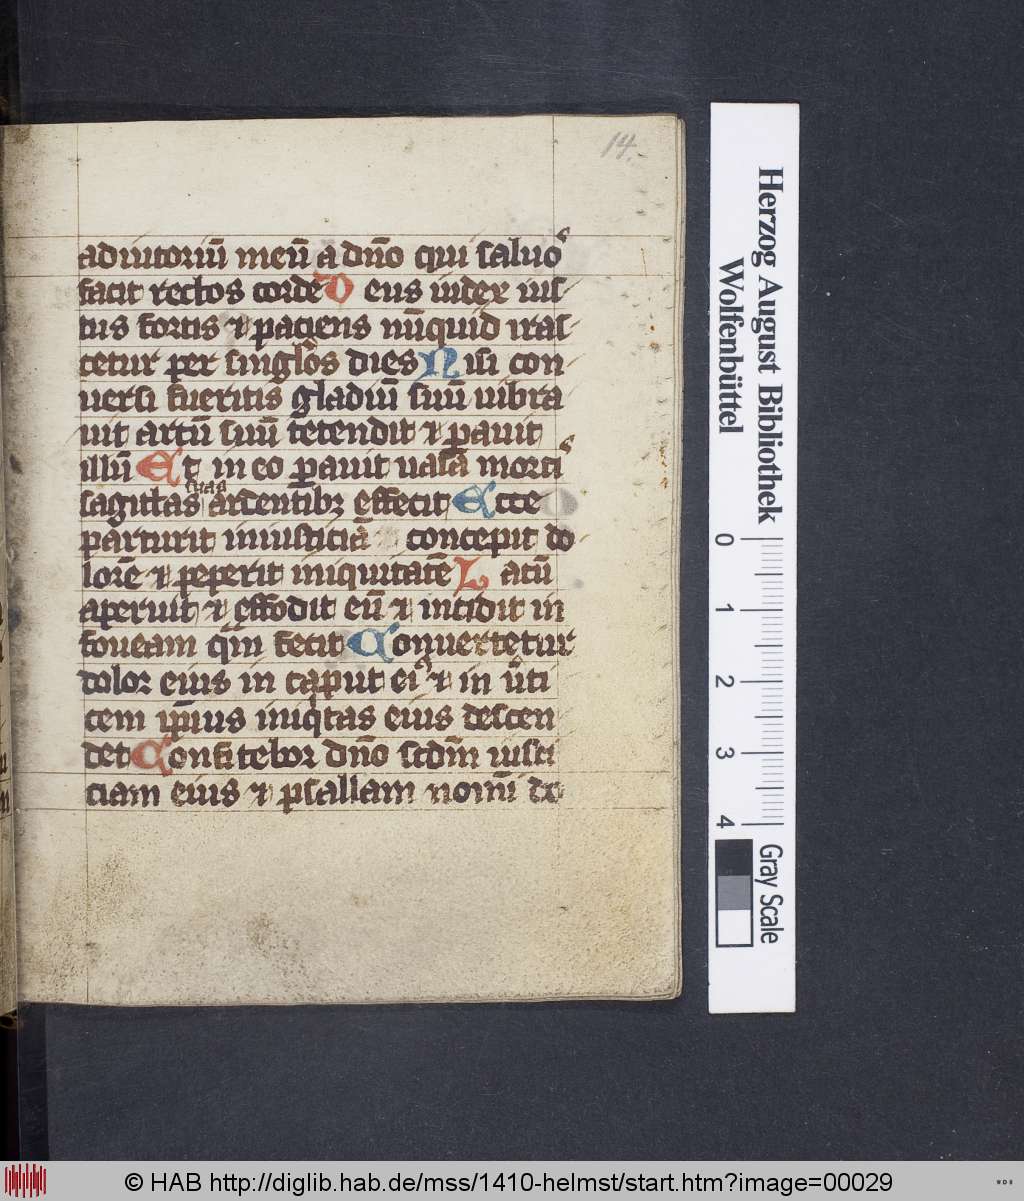 14.
adiutoriū meū a dn̄o qui saluoˢ
facit rectos corde Deus iudex ius
tus fortis ⁊ paciens nūquid iras
cetur per singlōs dies Nisi con
uersi fueritis gladiū suū uibra
uit arcū suū tetendit ⁊ ꝑauit
illū Et in eo ꝑauit uasa mortiˢ
sagittas suas ardentibꝫ effecit Ecce
parturit iniusticiā concepit do
lorē ⁊ peperit iniquitatē Lacū
aperuit ⁊ effodit eū ⁊ incidit in
foueam qm̄ fecit Conuertetur
dolor eius in caput eiꝰ ⁊ in ũti
cem ip̄ius iniqͥtas eius descen
det Confitebor dn̄o scdm̄ iusti
ciam eius ⁊ psallam nomī do
Herzog August Bibliothek
Wolfenbüttel
0 1 2 3 4
Gray Scale
© HAB http://diglib.hab.de/mss/1410-helmst/start.htm?image=00029